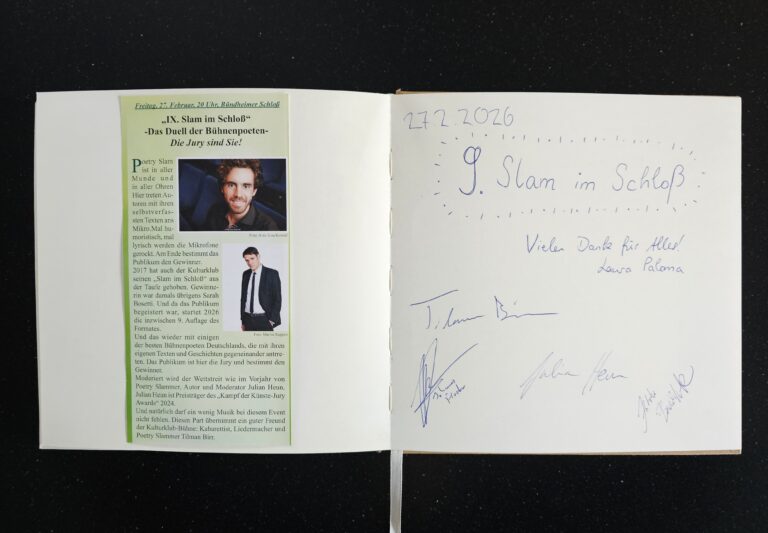 Freitag, 27. Februar, 20 Uhr, Bündheimer Schloß
„IX. Slam im Schloß“
-Das Duell der Bühnenpoeten-
Die Jury sind Sie!
Poetry Slam
ist in aller
Munde und
in aller Ohren
Hier treten Au-
toren mit ihren
selbstverfas-
sten Texten ans
Mikro.Mal hu-
moristisch, mal
lyrisch werden die Mikrofone
gerockt. Am Ende bestimmt das
Publikum den Gewinner.
2017 hat auch der Kulturklub
seinen „Slam im Schloß“ aus
der Taufe gehoben. Gewinne-
rin war damals übrigens Sarah
Bosetti. Und da das Publikum
begeistert war, startet 2026
die inzwischen 9. Auflage des
Formates.
Und das wieder mit einigen
der besten Bühnenpoeten Deutschlands, die mit ihren
eigenen Texten und Geschichten gegeneinander antre-
ten. Das Publikum ist hier die Jury und bestimmt den
Gewinner.
Moderiert wird der Wettstreit wie im Vorjahr von
Poetry Slammer, Autor und Moderator Julian Heun.
Julian Heun ist Preisträger des „Kampf der Künste-Jury
Awards“ 2024.
Und natürlich darf ein wenig Musik bei diesem Event
nicht fehlen. Diesen Part übernimmt ein guter Freund
der Kulturklub-Bühne: Kabarettist, Liedermacher und
Poetry Slammer Tilman Birr.
27.2.2026
9. Slam im Schloß
Vielen Dank für Alles!
Laura Paloma
Julian Heun